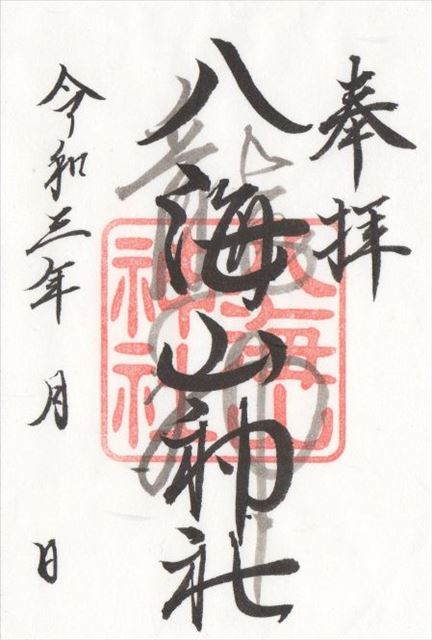 奉拝
八海山神社
八海山神社
令和三年 月 日